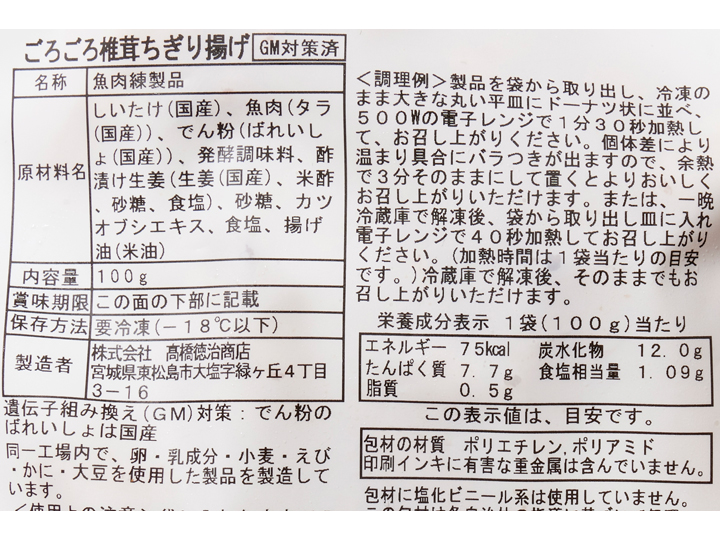 ごろごろ椎茸ちぎり揚げ GM対策済
名称 魚肉練製品
原材料名 しいたけ(国産)、魚肉(タラ
(国産))、でん粉(ばれいし
ょ(国産))、発酵調味料、酢
漬け生姜(生姜(国産)、米酢
、砂糖、食塩)、砂糖、カツ
オブシエキス、食塩、揚げ
油(米油)
内容量 100g
賞味期限 この面の下部に記載
保存方法 要冷凍(-18℃以下)
製造者 株式会社 高橋徳治商店
宮城県東松島市大塩字緑ヶ丘4丁目
3-16
遺伝子組み換え(GM)対策:でん粉の
ばれいしょは国産
同一工場内で、卵・乳成分・小麦・えび
・かに・大豆を使用した製品を製造して
います。
<調理例>製品を袋から取り出し、冷凍の
まま大きな丸い平皿にドーナツ状に並べ、
500Wの電子レンジで1分30秒加熱し
て、お召し上がりください。個体差により
温まり具合にバラつきが出ますので、余熱
で3分そのままにして置くとよりおいしく
お召し上がりいただけます。または、一晩
冷蔵庫で解凍後、袋から取り出し皿に入れ
電子レンジで40秒加熱してお召し上がり
ください。(加熱時間は1袋当たりの目安
です。)冷蔵庫で解凍後、そのままでもお
召し上がりいただけます。
栄養成分表示 1袋(100g)当たり
エネルギー 75kcal 炭水化物 12.0g
たんぱく質 7.7g 食塩相当量 1.09g
脂質 0.5g
この表示値は、目安です。
包材の材質 ポリエチレン,ポリアミド
印刷インキに有害な重金属は含んでいません。
包材に塩化ビニール系は使用していません。